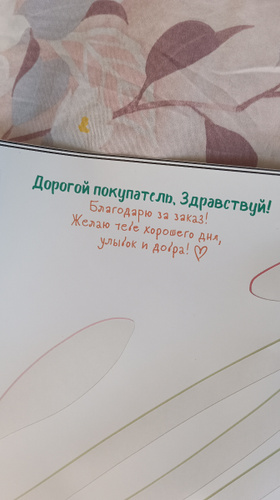 Дорогой покупатель, Здравствуй!
Благодарю за заказ!
Желаю тебе хорошего дня,
улыбок и добра! ♡